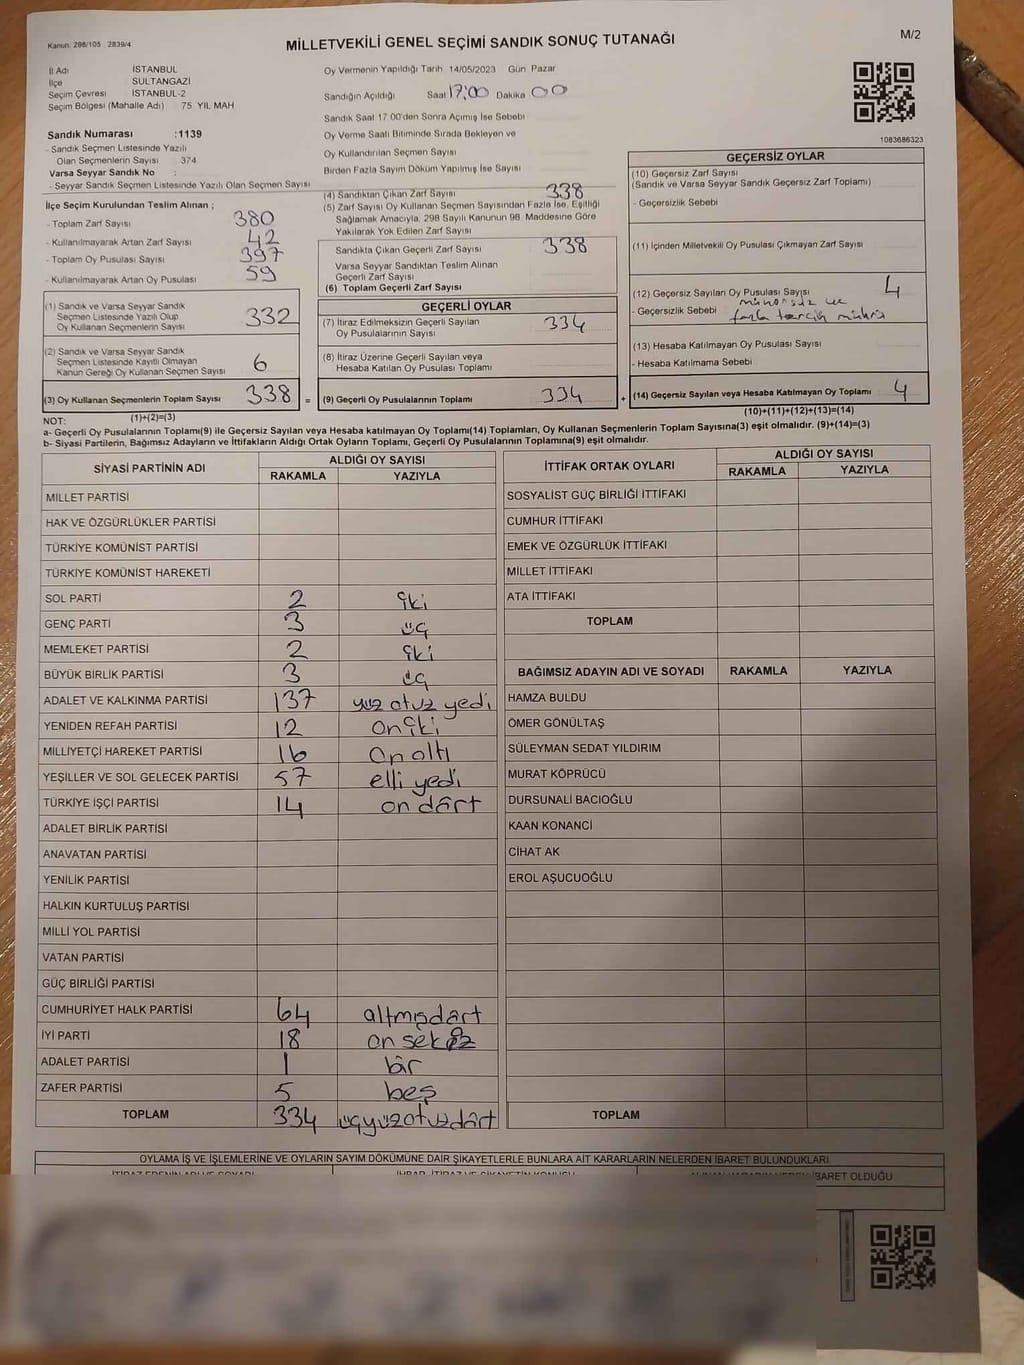 Kanun: 298/105 2839/4
MİLLETVEKİLİ GENEL SEÇİMİ SANDIK SONUÇ TUTANAĞI
M/2
İl Adı İSTANBUL
İlçe SULTANGAZİ
Seçim Çevresi İSTANBUL-2
Seçim Bölgesi (Mahalle Adı) 75 YIL MAH
Sandık Numarası :1139
- Sandık Seçmen Listesinde Yazılı
Olan Seçmenlerin Sayısı : 374
Varsa Seyyar Sandık No :
- Seyyar Sandık Seçmen Listesinde Yazılı Olan Seçmen Sayısı
Oy Vermenin Yapıldığı Tarih 14/05/2023 Gün Pazar
Sandığın Açıldığı Saat 17:00 Dakika 00
Sandık Saat 17:00'den Sonra Açımış İse Sebebi
Oy Verme Saati Bitiminde Sırada Bekleyen ve
Oy Kullandırılan Seçmen Sayısı
Birden Fazla Sayım Döküm Yapılmış İse Sayısı
1083686323
İlçe Seçim Kurulundan Teslim Alınan ;
- Toplam Zarf Sayısı 380
- Kullanılmayarak Artan Zarf Sayısı 42
- Toplam Oy Pusulası Sayısı 397
- Kullanılmayarak Artan Oy Pusulası 59
(1) Sandık ve Varsa Seyyar Sandık
Seçmen Listesinde Yazılı Olup
Oy Kullanan Seçmenlerin Sayısı 332
(2) Sandık ve Varsa Seyyar Sandık
Seçmen Listesinde Kayıtlı Olmayan
Kanun Gereği Oy Kullanan Seçmen Sayısı 6
(3) Oy Kullanan Seçmenlerin Toplam Sayısı 338 =
(1)+(2)=(3)
(4) Sandıktan Çıkan Zarf Sayısı 338
(5) Zarf Sayısı Oy Kullanan Seçmen Sayısından Fazla İse, Eşitliği
Sağlamak Amacıyla, 298 Sayılı Kanunun 98. Maddesine Göre
Yakılarak Yok Edilen Zarf Sayısı
Sandıkta Çıkan Geçerli Zarf Sayısı 338
Varsa Seyyar Sandıktan Teslim Alınan
Geçerli Zarf Sayısı
(6) Toplam Geçerli Zarf Sayısı
GEÇERLİ OYLAR
(7) İtiraz Edilmeksizin Geçerli Sayılan
Oy Pusulalarının Sayısı 334
(8) İtiraz Üzerine Geçerli Sayılan veya
Hesaba Katılan Oy Pusulası Toplamı
(9) Geçerli Oy Pusulalarının Toplamı 334 +
GEÇERSİZ OYLAR
(10) Geçersiz Zarf Sayısı
(Sandık ve Varsa Seyyar Sandık Geçersiz Zarf Toplamı)
- Geçersizlik Sebebi
(11) İçinden Milletvekili Oy Pusulası Çıkmayan Zarf Sayısı
(12) Geçersiz Sayılan Oy Pusulası Sayısı 4
- Geçersizlik Sebebi mühürsüz ve
fazla tercih mührü
(13) Hesaba Katılmayan Oy Pusulası Sayısı
- Hesaba Katılmama Sebebi
(14) Geçersiz Sayılan veya Hesaba Katılmayan Oy Toplamı 4
(10)+(11)+(12)+(13)=(14)
NOT:
a- Geçerli Oy Pusulalarının Toplamı(9) ile Geçersiz Sayılan veya Hesaba katılmayan Oy Toplamı(14) Toplamları, Oy Kullanan Seçmenlerin Toplam Sayısına(3) eşit olmalıdır. (9)+(14)=(3)
b- Siyasi Partilerin, Bağımsız Adayların ve İttifakların Aldığı Ortak Oyların Toplamı, Geçerli Oy Pusulalarının Toplamına(9) eşit olmalıdır.
SİYASİ PARTİNİN ADI ALDIĞI OY SAYISI
RAKAMLA YAZIYLA
MİLLET PARTİSİ
HAK VE ÖZGÜRLÜKLER PARTİSİ
TÜRKİYE KOMÜNİST PARTİSİ
TÜRKİYE KOMÜNİST HAREKETİ
SOL PARTİ 2 iki
GENÇ PARTİ 3 üç
MEMLEKET PARTİSİ 2 iki
BÜYÜK BİRLİK PARTİSİ 3 üç
ADALET VE KALKINMA PARTİSİ 137 yüz otuz yedi
YENİDEN REFAH PARTİSİ 12 on iki
MİLLİYETÇİ HAREKET PARTİSİ 16 On altı
YEŞİLLER VE SOL GELECEK PARTİSİ 57 elli yedi
TÜRKİYE İŞÇİ PARTİSİ 14 on dört
ADALET BİRLİK PARTİSİ
ANAVATAN PARTİSİ
YENİLİK PARTİSİ
HALKIN KURTULUŞ PARTİSİ
MİLLİ YOL PARTİSİ
VATAN PARTİSİ
GÜÇ BİRLİĞİ PARTİSİ
CUMHURİYET HALK PARTİSİ 64 altmışdört
İYİ PARTİ 18 on sekiz
ADALET PARTİSİ 1 bir
ZAFER PARTİSİ 5 beş
TOPLAM 334 üçyüzotuzdört
İTTİFAK ORTAK OYLARI ALDIĞI OY SAYISI
RAKAMLA YAZIYLA
SOSYALİST GÜÇ BİRLİĞİ İTTİFAKI
CUMHUR İTTİFAKI
EMEK VE ÖZGÜRLÜK İTTİFAKI
MİLLET İTTİFAKI
ATA İTTİFAKI
TOPLAM
BAĞIMSIZ ADAYIN ADI VE SOYADI RAKAMLA YAZIYLA
HAMZA BULDU
ÖMER GÖNÜLTAŞ
SÜLEYMAN SEDAT YILDIRIM
MURAT KÖPRÜCÜ
DURSUNALİ BACIOĞLU
KAAN KONANCİ
CİHAT AK
EROL AŞUCUOĞLU
TOPLAM
OYLAMA İŞ VE İŞLEMLERİNE VE OYLARIN SAYIM DÖKÜMÜNE DAİR ŞİKAYETLERLE BUNLARA AİT KARARLARIN NELERDEN İBARET BULUNDUKLARI
İTİRAZ EDENİN ADI VE SOYADI İHBAR, İTİRAZ VE ŞİKAYETİN KONUSU İBARET OLDUĞU